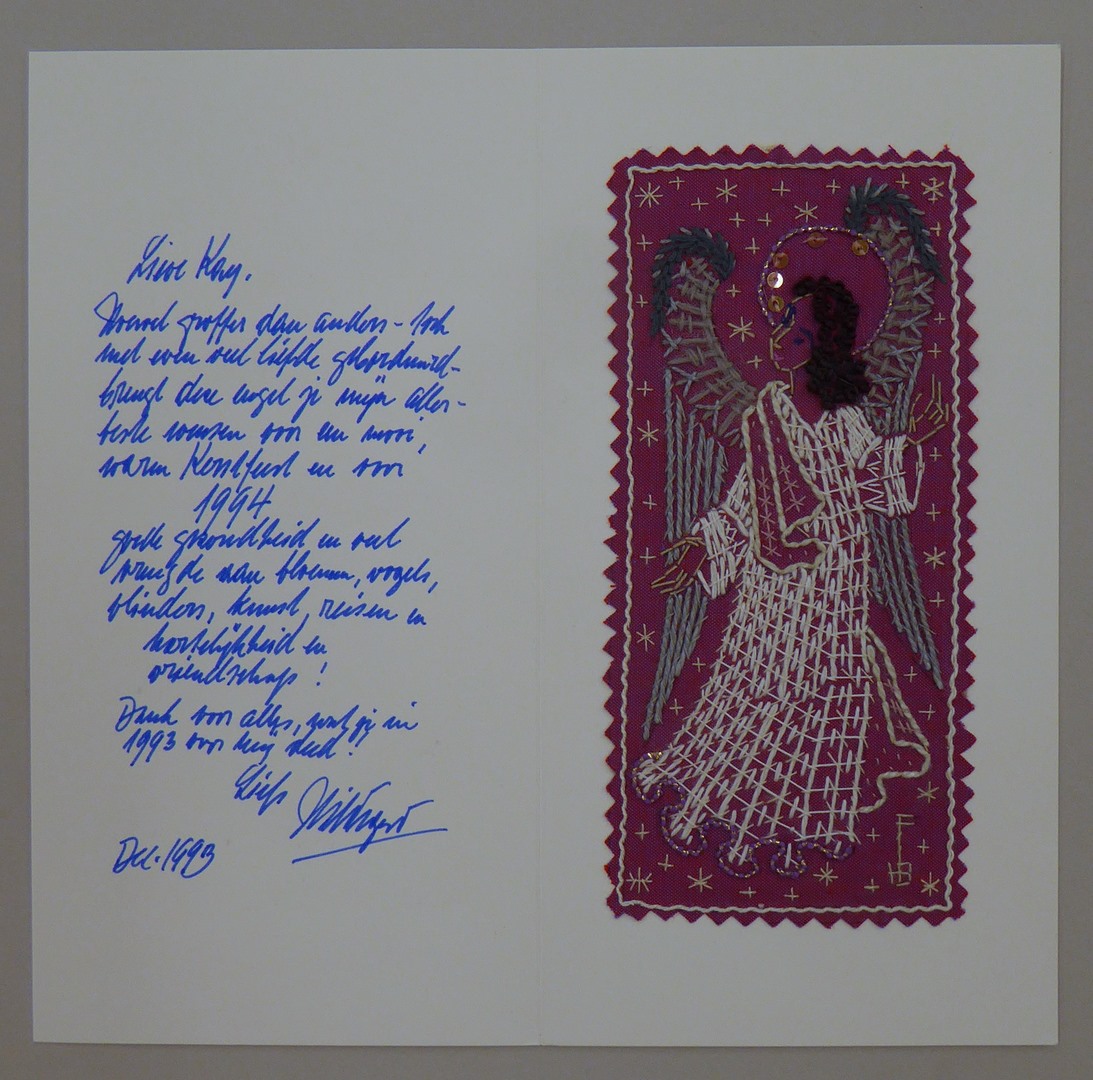 Lieve Kay.
Hoewel groffer dan anders - toch
met even veel liefde geborduurd -
brengt deze engel je mijn aller-
beste wensen voor een mooi,
warm Kerstfeest en voor
1994
goede gezondheid en veel
vreugde van bloemen, vogels,
vlinders, kunst, reizen en
hartelijkheid en
vriendschap!
Dank voor alles, wat je in
1993 voor mij deed!
Liefs
Dec. 1993